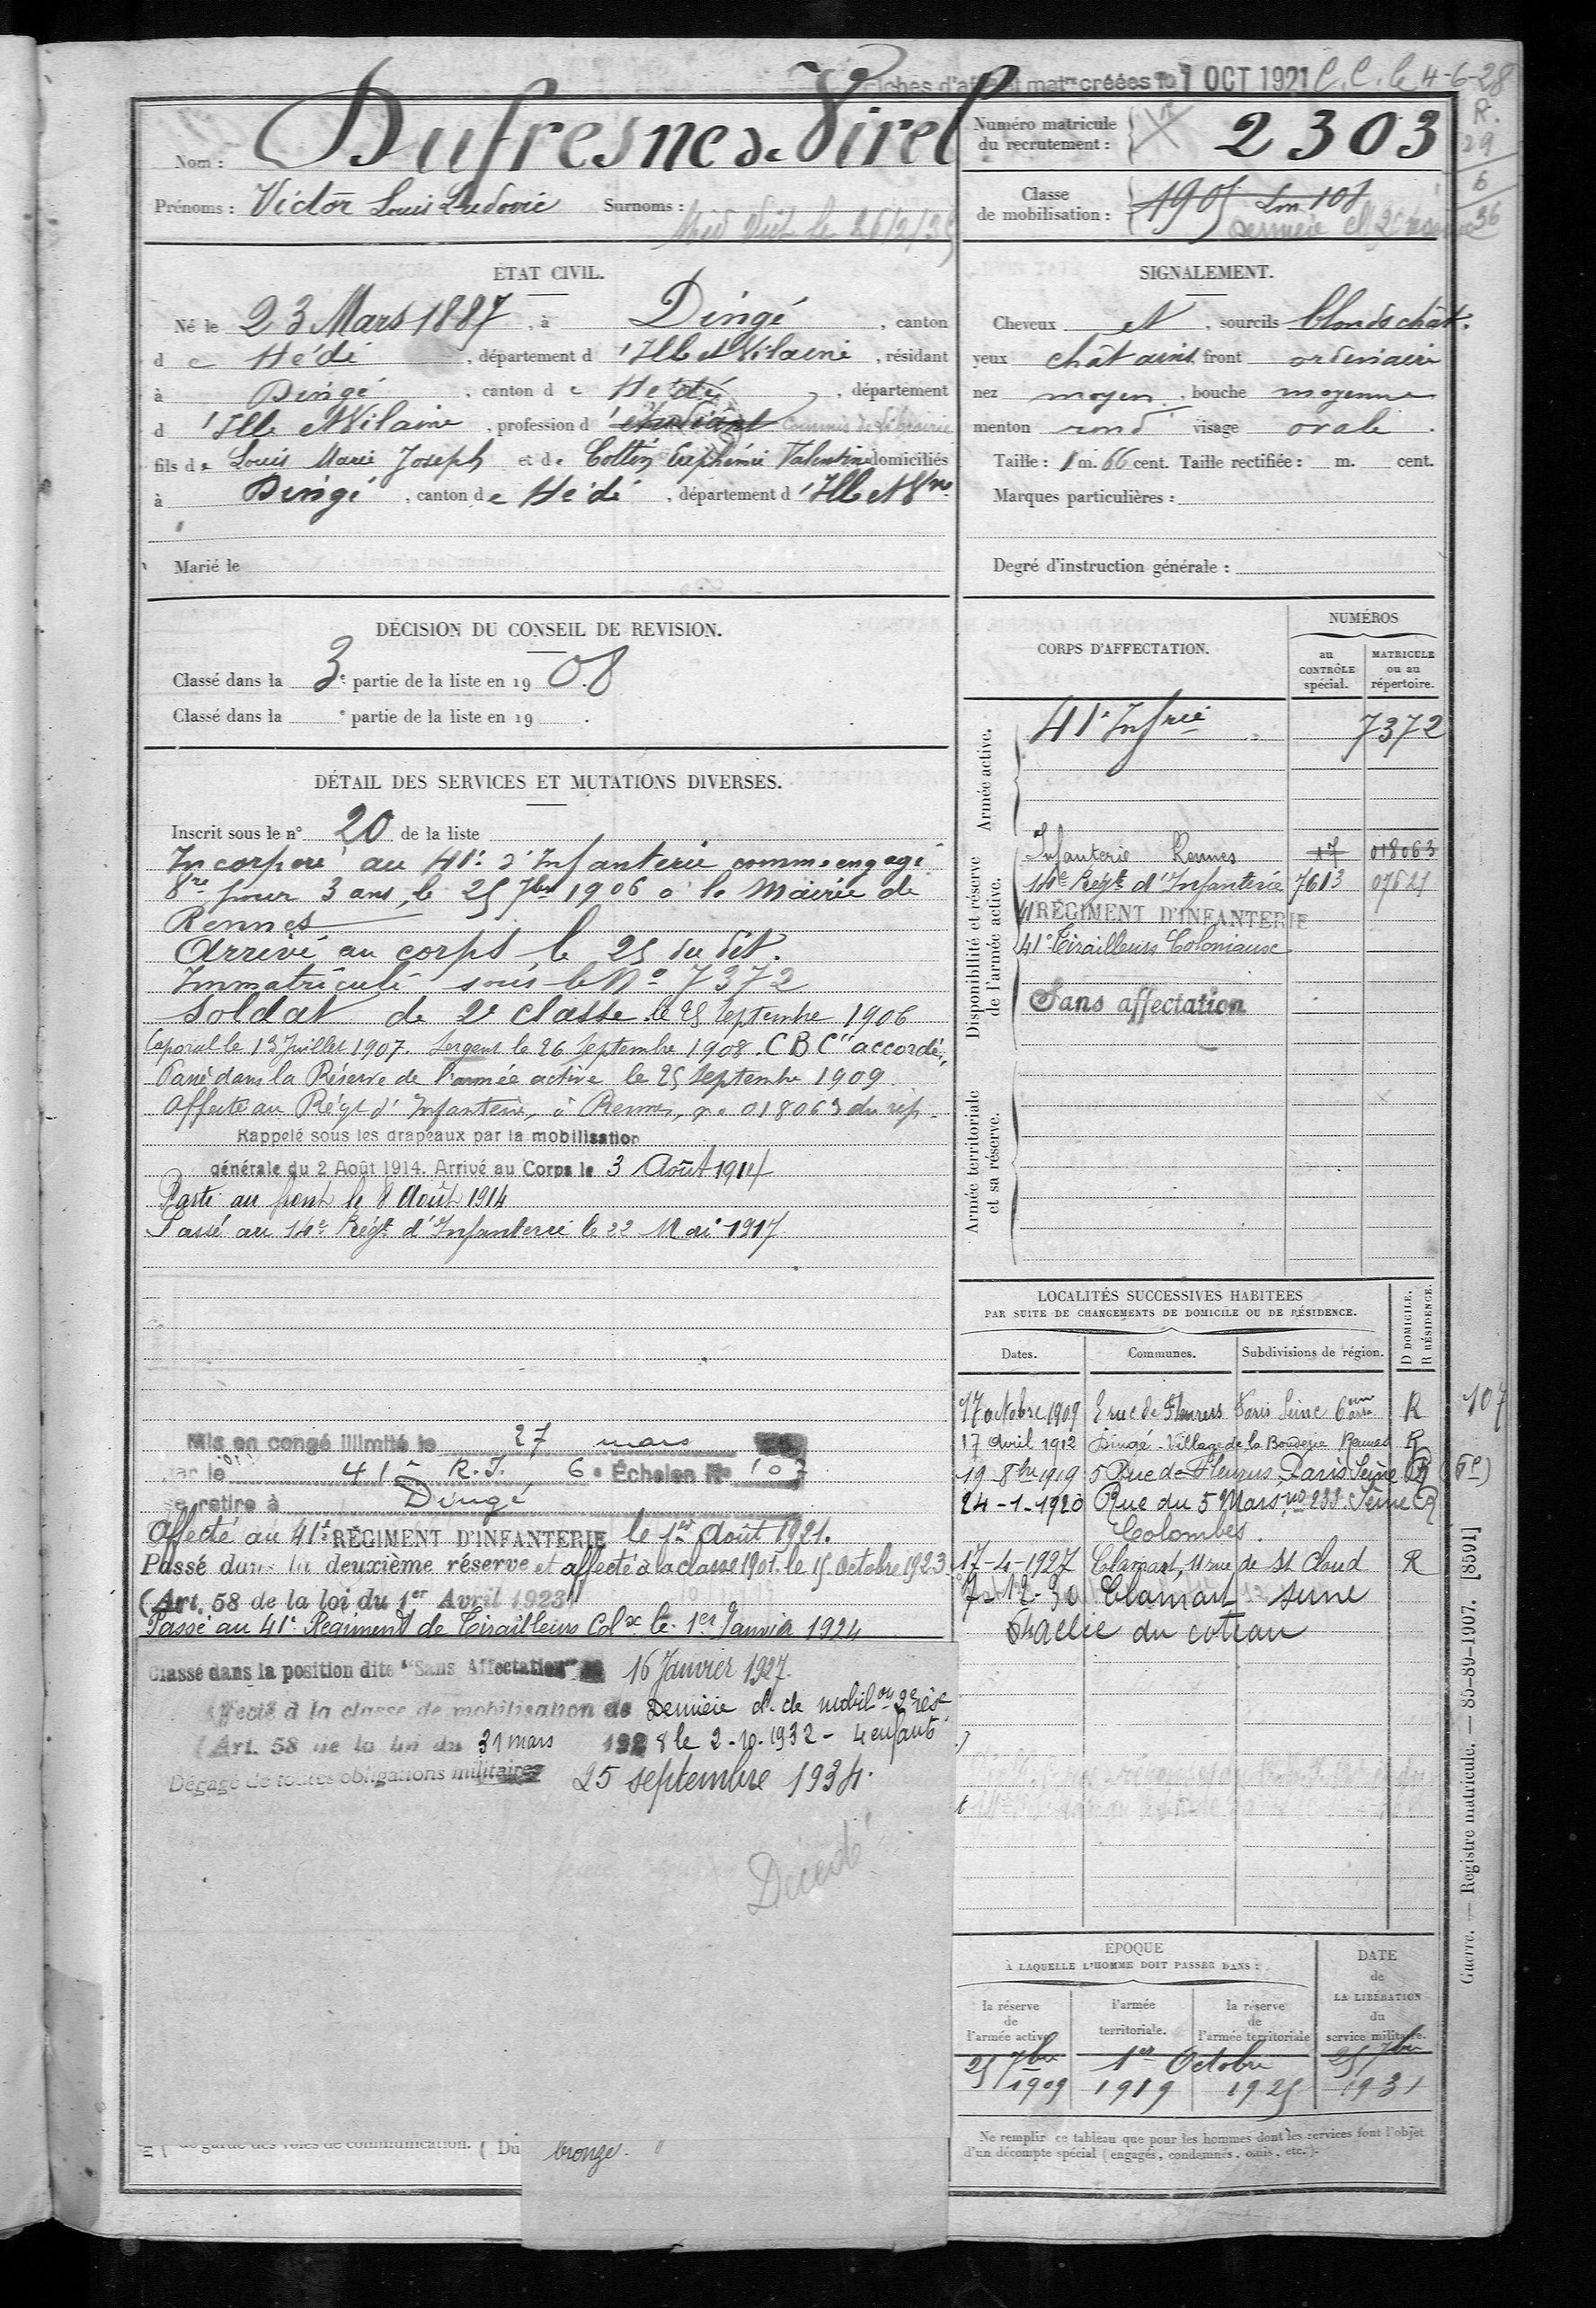 Fiches d'aff et mat créées 1 OCT 1921 C. C. le 4-6-28
Nom : Dufresne de Virel
Prénoms : Victor Louis Ludovic Surnoms :
Numéro matricule du recrutement : 2303
R.
29
6
36
Classe de mobilisation : 1905
ÉTAT CIVIL.
Né le 23 Mars 1887, à Dingé, canton
de Hédé, département d'Ille et Vilaine, résidant
à Dingé, canton de Hédé, département
d'Ille et Vilaine, profession d'étudiant Commis de librairie
fils de Louis Marie Joseph et de Collin Euphémie Valentine domiciliés
à Dingé, canton de Hédé, département d'Ille et Vne
Marié le
SIGNALEMENT.
Cheveux et, sourcils blonds chât.
yeux châtains, front ordinaire
nez moyen, bouche moyenne
menton rond visage ovale.
Taille : 1 m. 66 cent. Taille rectifiée : m. cent.
Marques particulières :
Degré d'instruction générale :
DÉCISION DU CONSEIL DE REVISION.
Classé dans la 3e partie de la liste en 1908
Classé dans la e partie de la liste en 19 .
DÉTAIL DES SERVICES ET MUTATIONS DIVERSES.
Inscrit sous le n° 20 de la liste
Incorporé au 41e d'Infanterie comme engagé
pour 3 ans, le 25 7bre 1906 à la Mairie de
Rennes
Arrivé au corps le 25 du dit.
Immatriculé sous le No 7372
Soldat de 2e classe le 25 Septembre 1906
Caporal le 13 Juillet 1907. Sergent le 26 Septembre 1908. C B C accordé.
Passé dans la Réserve de l'armée active le 25 Septembre 1909.
Affecté au Régt d'Infanterie, à Rennes, no 018063 du rép.
Rappelé sous les drapeaux par la mobilisation
générale du 2 Août 1914. Arrivé au Corps le 3 Août 1914
Parti au front le 8 Août 1914
Passé au 14e Régt d'Infanterie le 22 Mai 1917
Mis en congé illimité le 27 mars
par le 41e R.I. 6e Échelon No 107
se retire à Dingé
Affecté au 41e RÉGIMENT D'INFANTERIE le 1er Août 1921.
Passé dans la deuxième réserve et affecté à la classe 1901. le 15 Octobre 1923
(Art. 58 de la loi du 1er Avril 1923)
Passé au 41e Régiment de Tirailleurs Colx le 1er Janvier 1924
Classé dans la position dite "Sans Affectation" 16 Janvier 1927.
Affecté à la classe de mobilisation de Dernière cl. de mobilon 2e rése
(Art. 58 de la loi du 31 mars 1928 le 2-10-1932 - 4 enfants
Dégagé de toutes obligations militaires 25 septembre 1934.
Décédé
de garde des voies de communication. ( Du
bronze. "
CORPS D'AFFECTATION.
NUMÉROS
au CONTRÔLE spécial.
MATRICULE ou au répertoire.
Armée active.
41e Infrie 7372
Disponibilité et réserve de l'armée active.
Infanterie Rennes 17 018063
14e Régt d'Infanterie 7613
41 RÉGIMENT D'INFANTERIE
41e Tirailleurs Coloniaux
Sans affectation
Armée territoriale et sa réserve.
LOCALITÉS SUCCESSIVES HABITÉES
PAR SUITE DE CHANGEMENTS DE DOMICILE OU DE RÉSIDENCE.
Dates. Communes. Subdivisions de région. D DOMICILE. R RÉSIDENCE.
17 octobre 1909 rue de Fleurus Paris Seine 6eme arrt R
107
17 Avril 1912 Dingé - Village de la Rennes R
19 8bre 1919 5 Rue de Fleurus Paris Seine R (6e)
24-1-1920 Rue du 5 Mars, no 233 Seine R
Colombes.
17-4-1927 Clamart, 11 rue de St Cloud R
7-12-30 Clamart Seine
allée du coteau
EPOQUE
À LAQUELLE L'HOMME DOIT PASSER DANS :
DATE de LA LIBÉRATION du service militaire.
la réserve de l'armée active
l'armée territoriale.
la réserve de l'armée territoriale
25 7bre 1er Octobre 25 7bre
1909 1919 1925 1931
Ne remplir ce tableau que pour les hommes dont les services font l'objet
d'un décompte spécial (engagés, condamnés, omis, etc.).
Guerre. — Registre matricule. — 85-89-1907. [8591]